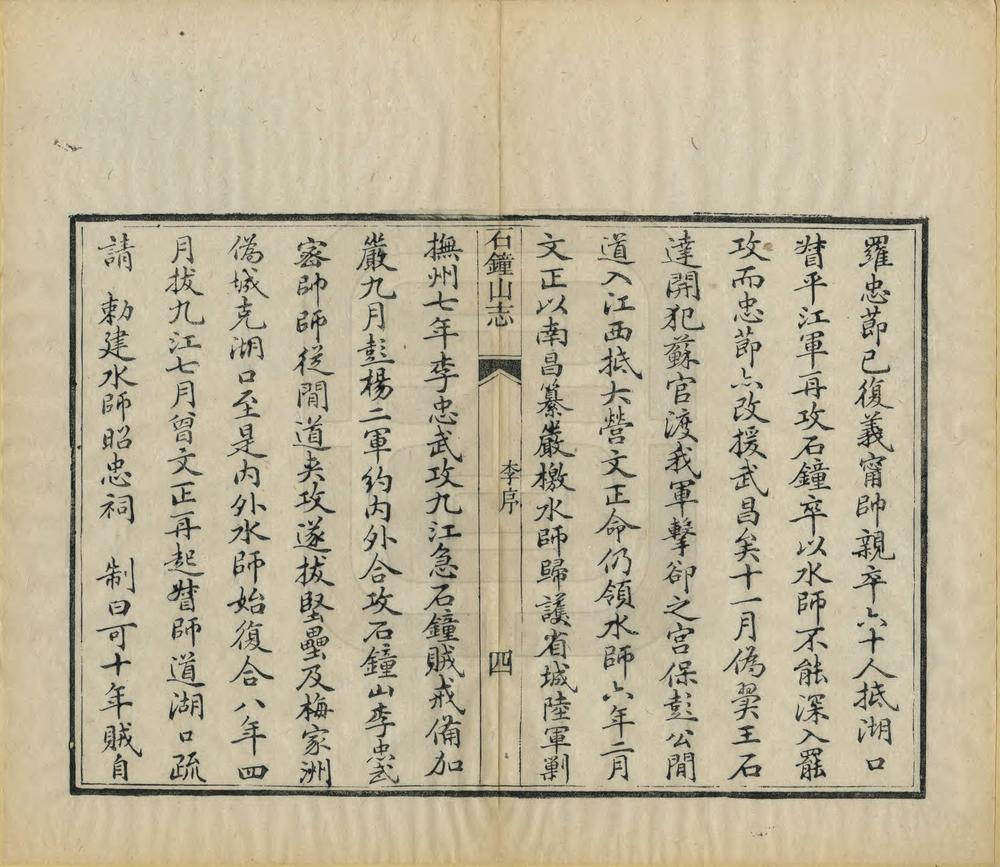 羅忠節已復義甯帥親卒六十人抵湖口
督平江軍再攻石鐘卒以水師不能深入罷
攻而忠節亦改援武昌矣十一月偽翼王石
達開犯蘇官渡我軍擊卻之宮保彭公閒
道入江西抵大營文正命仍領水師六年二月
文正以南昌纂嚴檄水師歸護省城陸軍剿
石鐘山志
李序
四
撫州七年李忠武攻九江急石鐘賊戒備加
嚴九月彭楊二軍約內外合攻石鐘山李忠武
密帥師從閒道夾攻遂拔堅壘及梅家洲
偽城克湖口至是內外水師始復合八年四
月拔九江七月曾文正再起督師道湖口疏
請 勅建水師昭忠祠 制曰可十年賊自